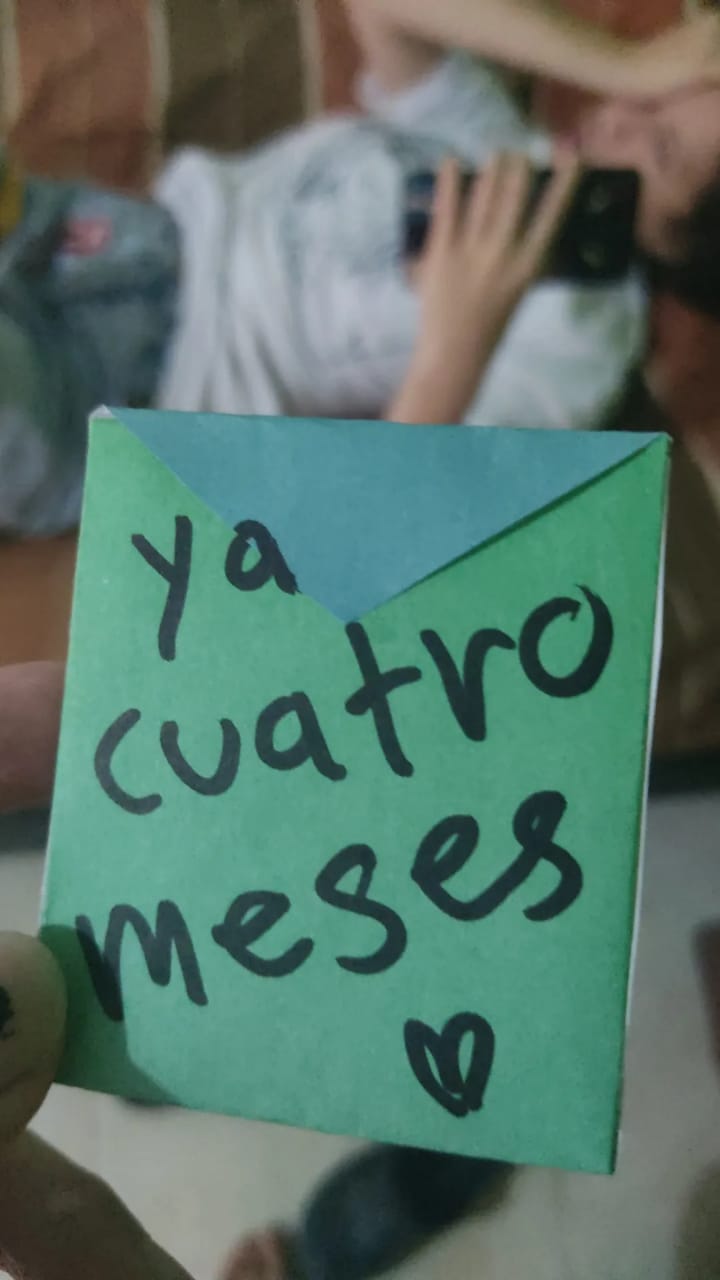 ya
cuatro
meses